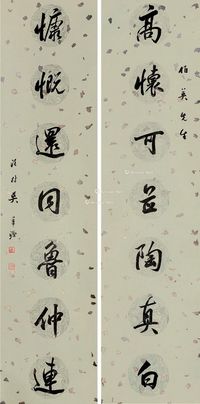 伯英先生
高懷可並陶真白
慷慨還同魯仲連
吳